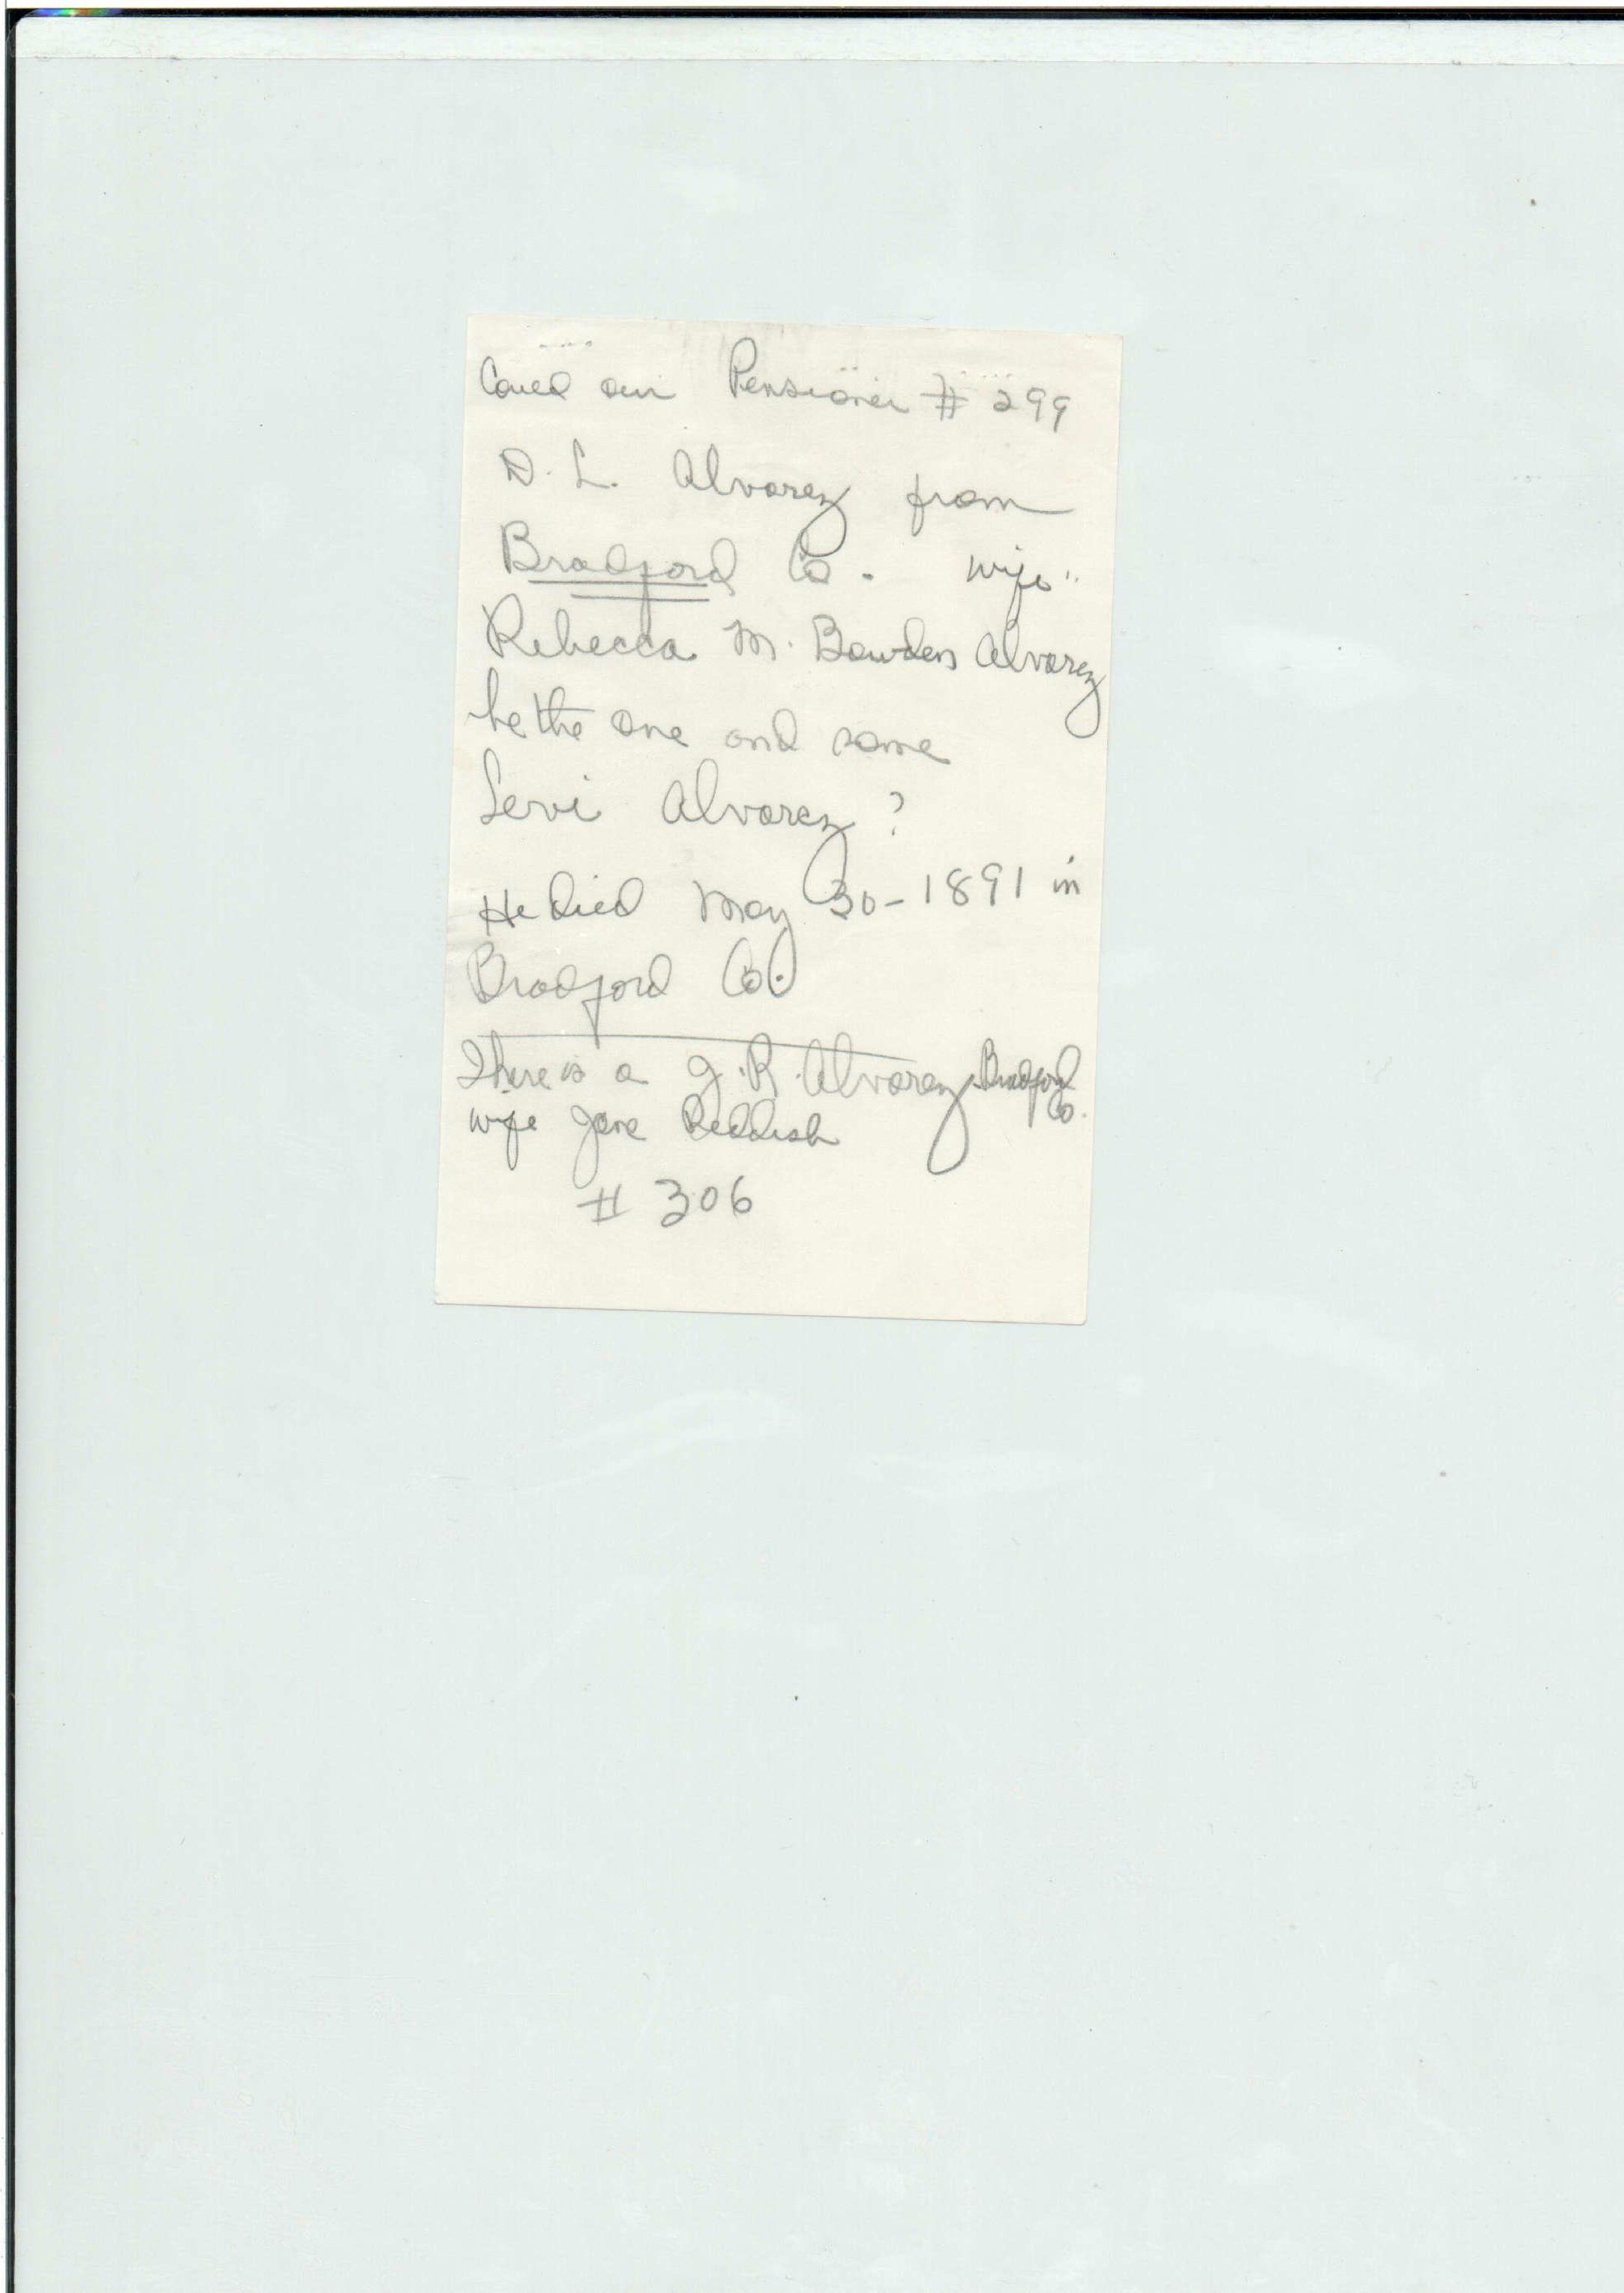 Could our Pensioner # 299
D. L. Alvarez from
Bradford Co. wife"
Rebecca M. Bowden Alvarez
be the one and same
Levi Alvarez?
He died May 30-1891 in
Bradford Co.
There is a J. R. Alvarez Bradford Co.
wife Jane Reddish
# 306